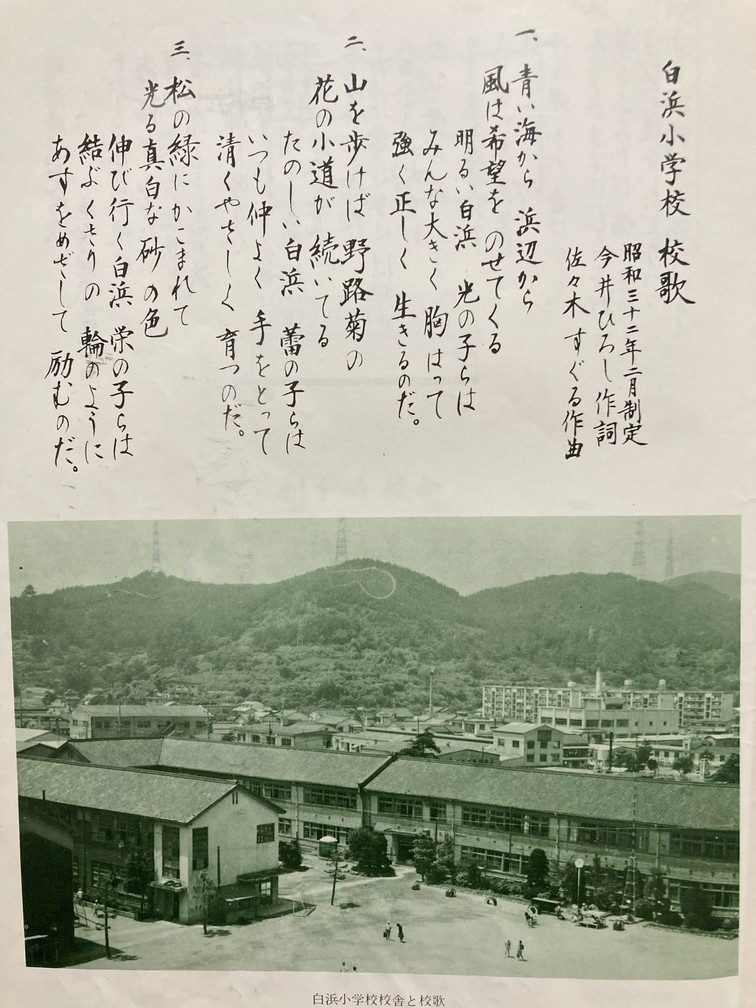 白浜小学校 校歌
昭和三十二年二月制定
今井ひろし作詞
佐々木すぐる作曲
一、青い海から 浜辺から
風は希望を のせてくる
明るい白浜 光の子らは
みんな大きく 胸はって
強く正しく 生きるのだ。
二、山を歩けば 野路菊の
花の小道が 続いてる
たのしい白浜 蕾の子らは
いつも仲よく 手をとって
清くやさしく 育つのだ。
三、松の緑に かこまれて
光る真白な 砂の色
伸び行く白浜 栄の子らは
結ぶくさりの 輪のように
あすをめざして 励むのだ。
白浜小学校校舎と校歌